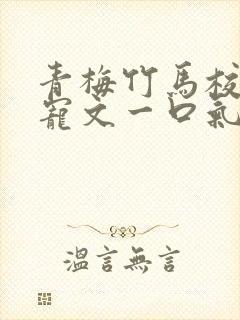 青梅竹馬校
寵文一口氣
溫言無言